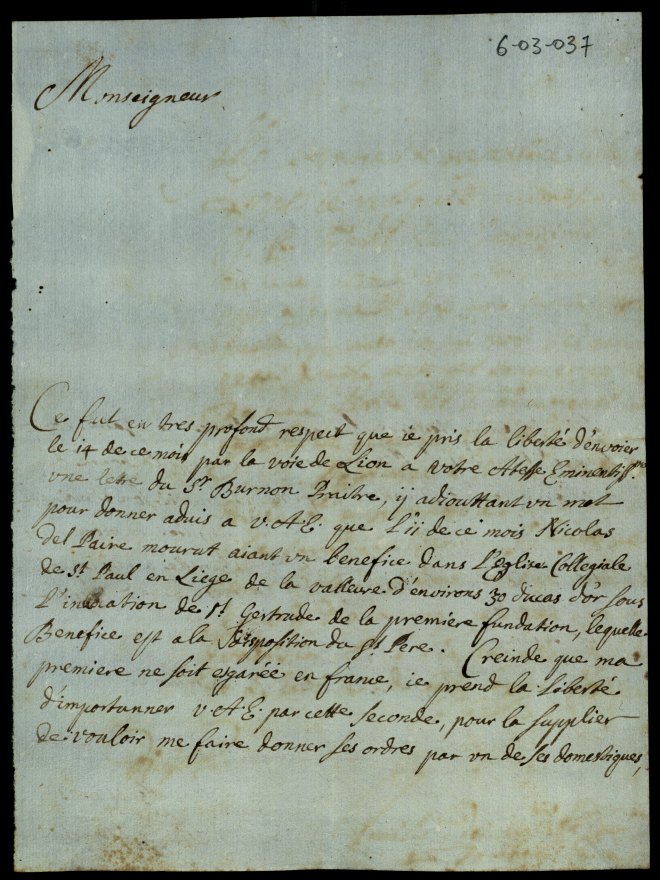 6-03-037
Monseigneur
Ce fut en tres profond respect que ie pris la liberté d'envoier
le 14 de ce mois par la voie de Lion a Votre Altesse Eminentiss.me
vne letre du Sr. Burnon Praitre, ij adiouttant vn mot
pour donner aduis a v.A.E. que l'11 de ce mois Nicolas
del Paire mourut aiant vn benefice dans l'Eglise Collegiale
de St. Paul en Liege de la valleure d'environs 30 ducas d'or sous
l'inuocation de St. Gertrude de la premiere fundation, lequelle
Benefice est a la disposition du St. Pere. Creinde que ma
premiere ne soit esgarée en france, ie prend la Liberté
d'importunner v.A.E. par cette seconde, pour la supplier
de vouloir me faire donner ses ordres par vn de ses domestiques,